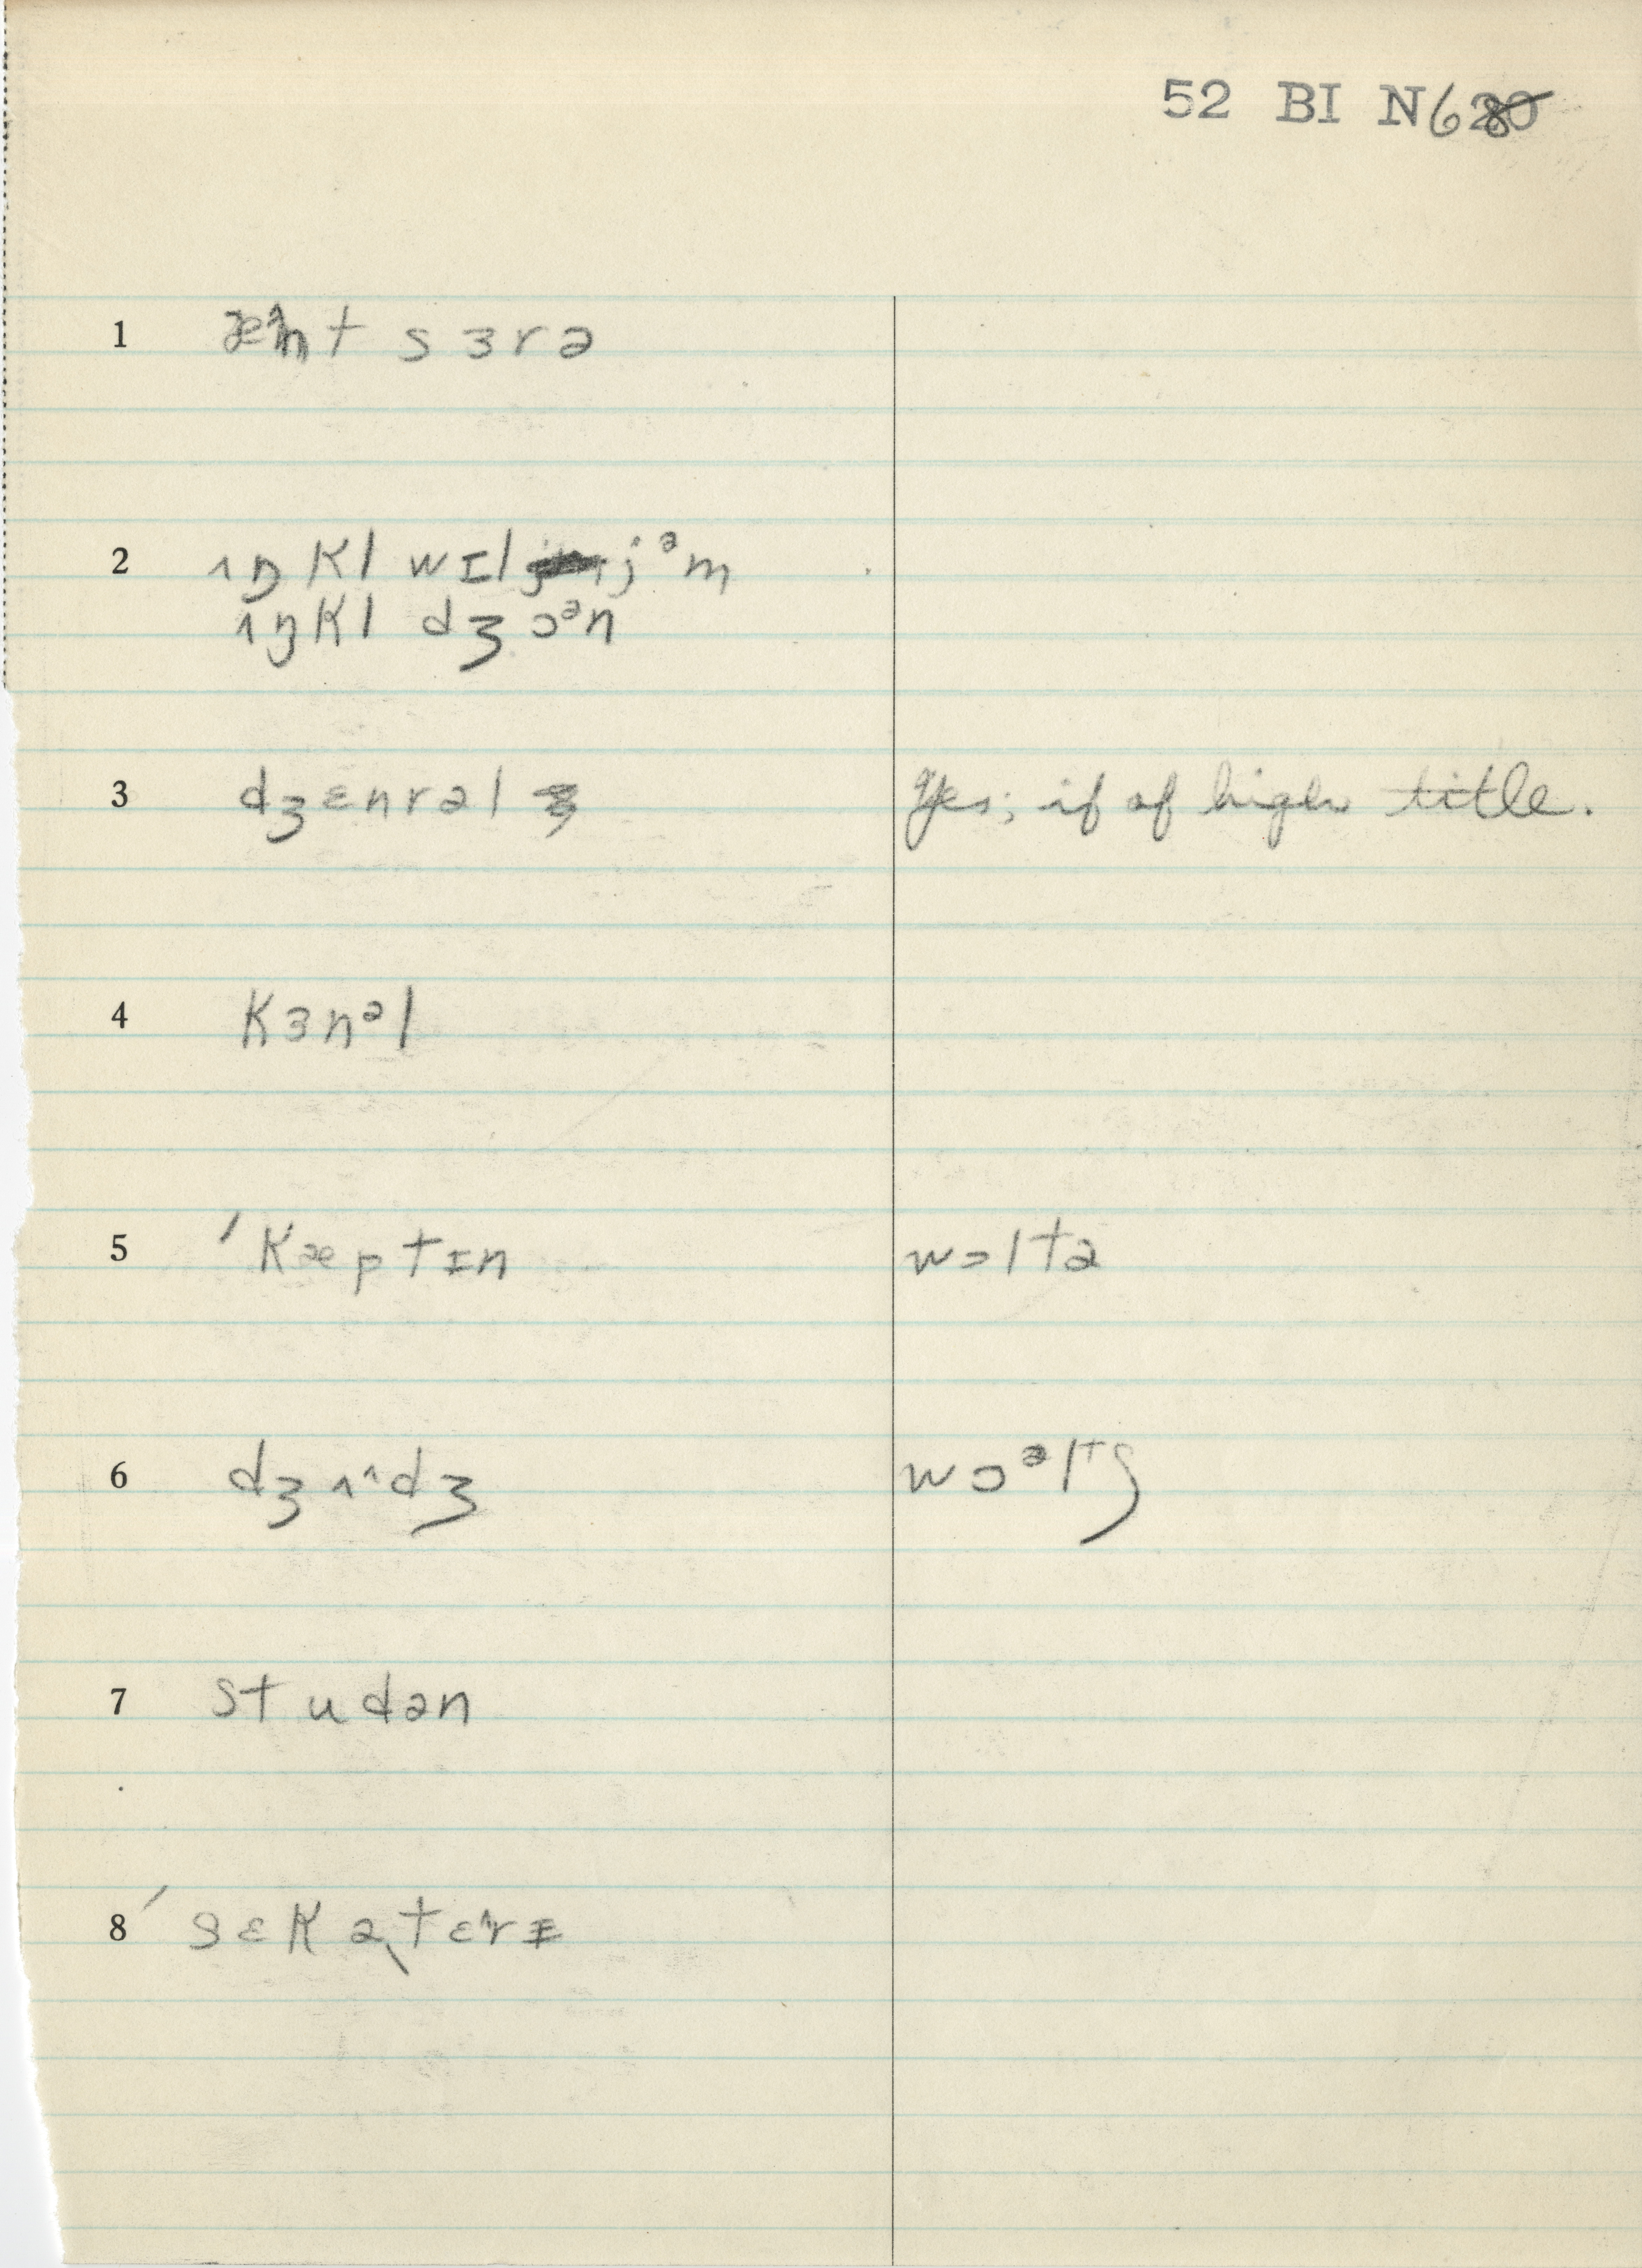 52 BI N6
1 æɪnt sɜrə
2 ʌŋkl wɪljᵊm
ʌŋkl dʒɔᵊn
3 dʒɛnrəl Yes; if of high title.
4 kɜnᵊl
5 ˈkæptɪn wɔltə
6 dʒʌᶺdʒ
7 studən
8